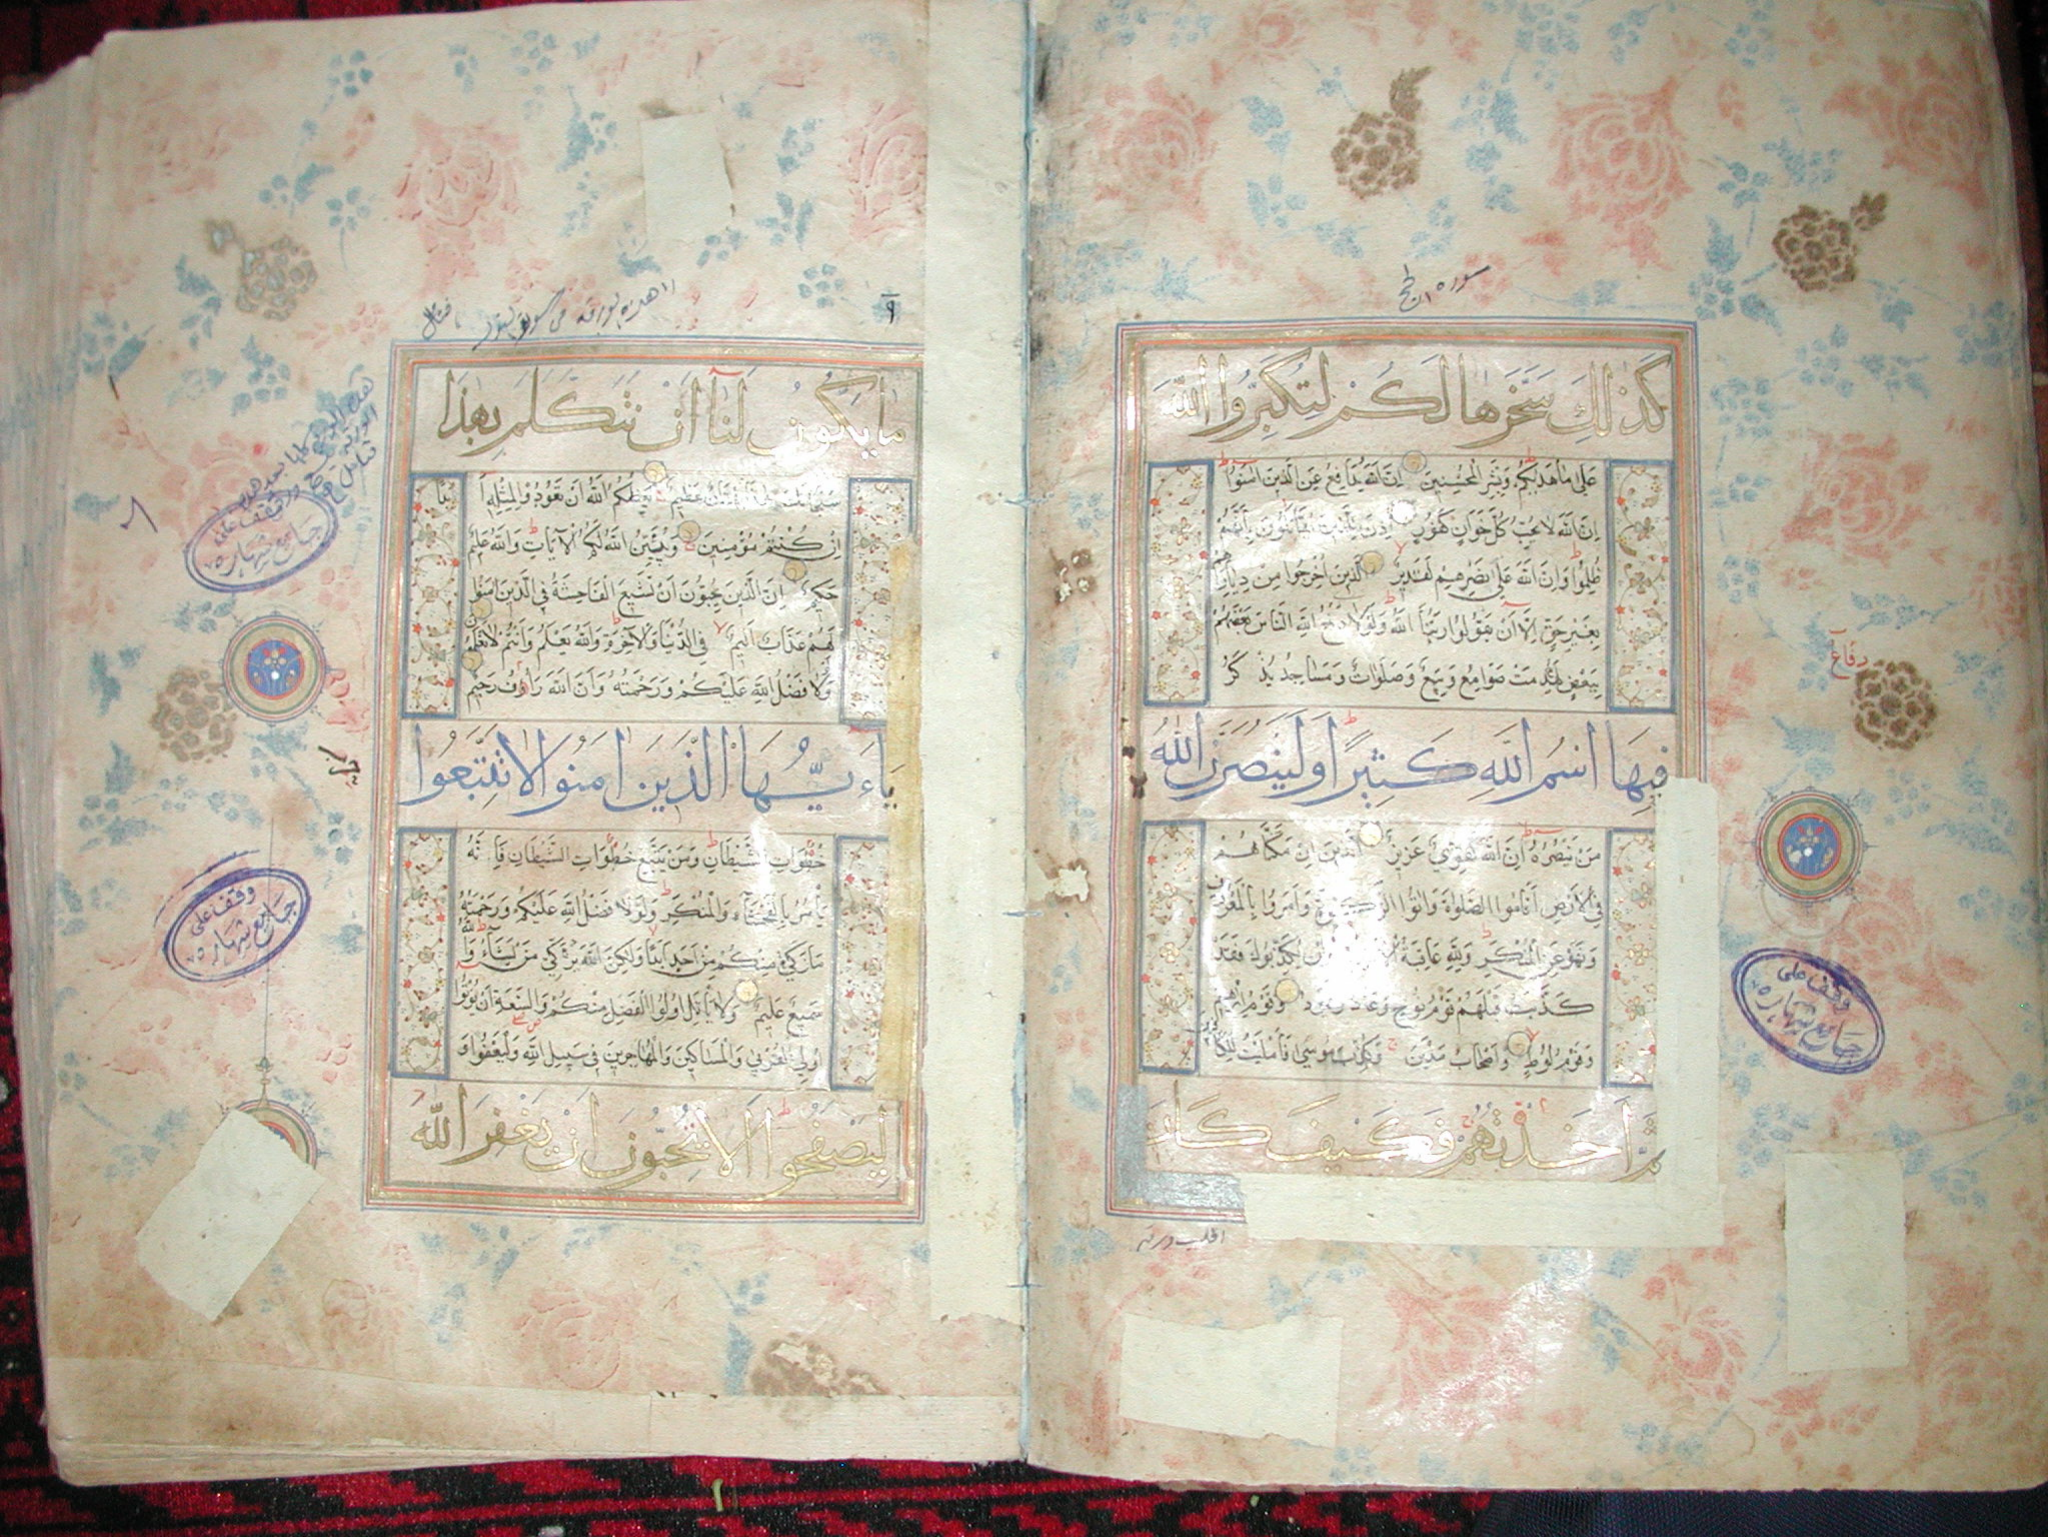 سورة الحج
كذلك سخرها لكم لتكبروا الله
على ما هديكم وبشر المحسنين ان الله يدافع عن الذين امنوا
ان الله لا يحب كل خوان كفور اذن للذين يقاتلون بانهم
ظلموا وان الله على نصرهم لقدير الذين اخرجوا من ديارهم
بغير حق الا ان يقولوا ربنا الله ولولا دفع الله الناس بعضهم
ببعض لهدمت صوامع وبيع وصلوات ومساجد يذكر
فيها اسم الله كثيرا ولينصرن الله
من ينصره ان الله لقوي عزيز الذين ان مكناهم
في الارض اقاموا الصلوة واتوا الزكوة وامروا بالمعروف
ونهوا عن المنكر ولله عاقبة وان يكذبوك فقد
كذبت قبلهم قوم نوح وعاد وثمود وقوم ابرهيم
وقوم لوط واصحاب مدين وكذب موسى فامليت للكافرين
ثم اخذتهم فكيف كان
دفاع
وقف على
جامع شهاره
٩
ما يكون لنا ان نتكلم بهذا
سبحانك هذا بهتان عظيم يعظكم الله ان تعودوا لمثله ا
ان كنتم مؤمنين ويبين الله لكم الايات والله عليم
حكيم ان الذين يحبون ان تشيع الفاحشة في الذين امنوا
لهم عذاب اليم في الدنيا والاخرة والله يعلم وانتم لا تعلمون
ولولا فضل الله عليكم ورحمته وان الله رءوف رحيم
ياء يها الذين امنوا لا تتبعوا
خطوات الشيطان ومن يتبع خطوات الشيطان فانه
يأمر بالفحشاء والمنكر ولولا فضل الله عليكم ورحمته
ما زكى منكم من احد ابدا ولكن الله يزكي من يشاء والله
سميع عليم ولا يأتل اولوا الفضل منكم والسعة ان يؤتوا
اولي القربى والمساكين والمهاجرين في سبيل الله وليعفوا و
ليصفحوا الا تحبون ان يغفر الله
وقف على
جامع شهاره
وقف على
جامع شهاره